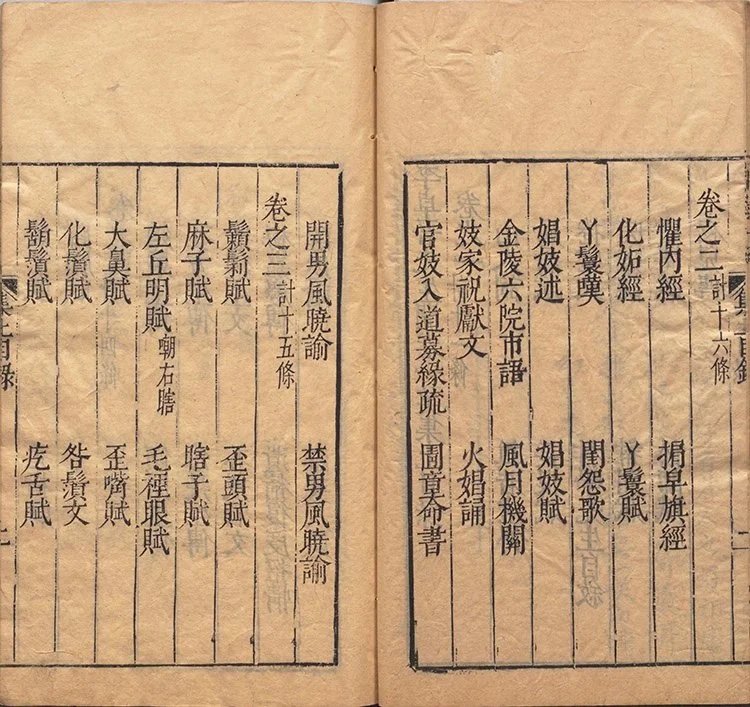 卷之二 計十六條
懼內經 掮皁旗經
化妬經 丫鬟賦
丫鬟嘆 閨怨歌
娼妓述 娼妓賦
金陵六院市語 風月機關
妓家祝獻文 火娼誦
官妓入道募緣疏 命書
開男風曉諭 禁男風曉諭
卷之三 計十五條
鬎鬁賦 歪頭賦
麻子賦 瞎子賦
左丘明賦 嘲右瞎 毛裡眼賦
大鼻賦 歪嘴賦
化鬚賦 咎鬚文
鬍鬚賦 疙舌賦